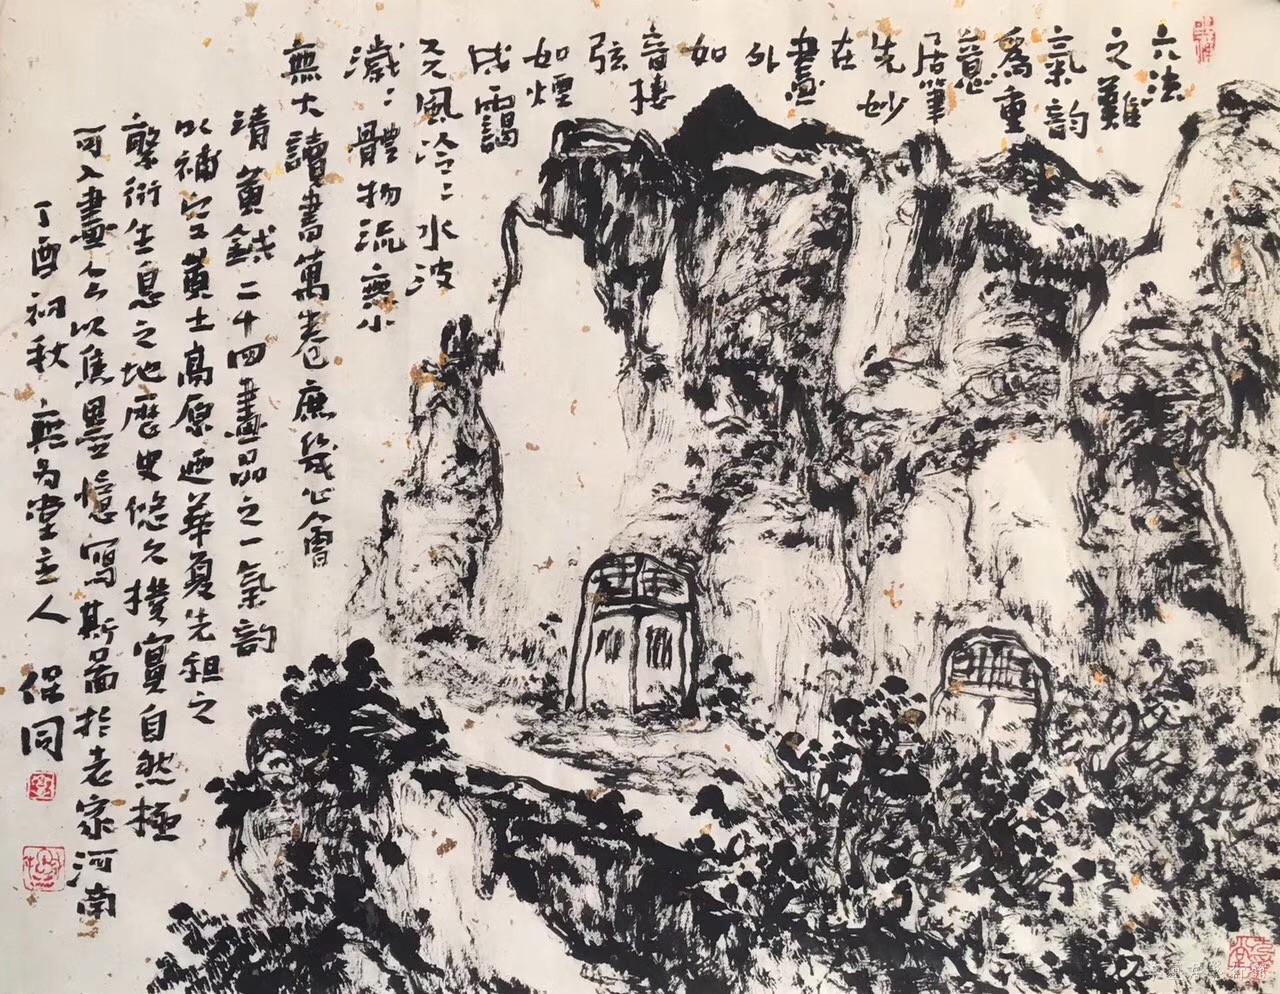 六法
之難
氣韵
為重
意
居筆
先妙
在
畫
外
如
音棲
弦
如煙
成靄
天風泠泠水波
濺濺體物流無小
無大讀書萬卷庶幾心會
清黃鉞二十四畫品之一氣韵
以補空黄土高原迺華夏先祖之
繁衍生息之地歷史悠久撲實自然極
可入畫今以焦墨憶寫斯圖於老家河南
丁酉初秋 無為堂主人 保同